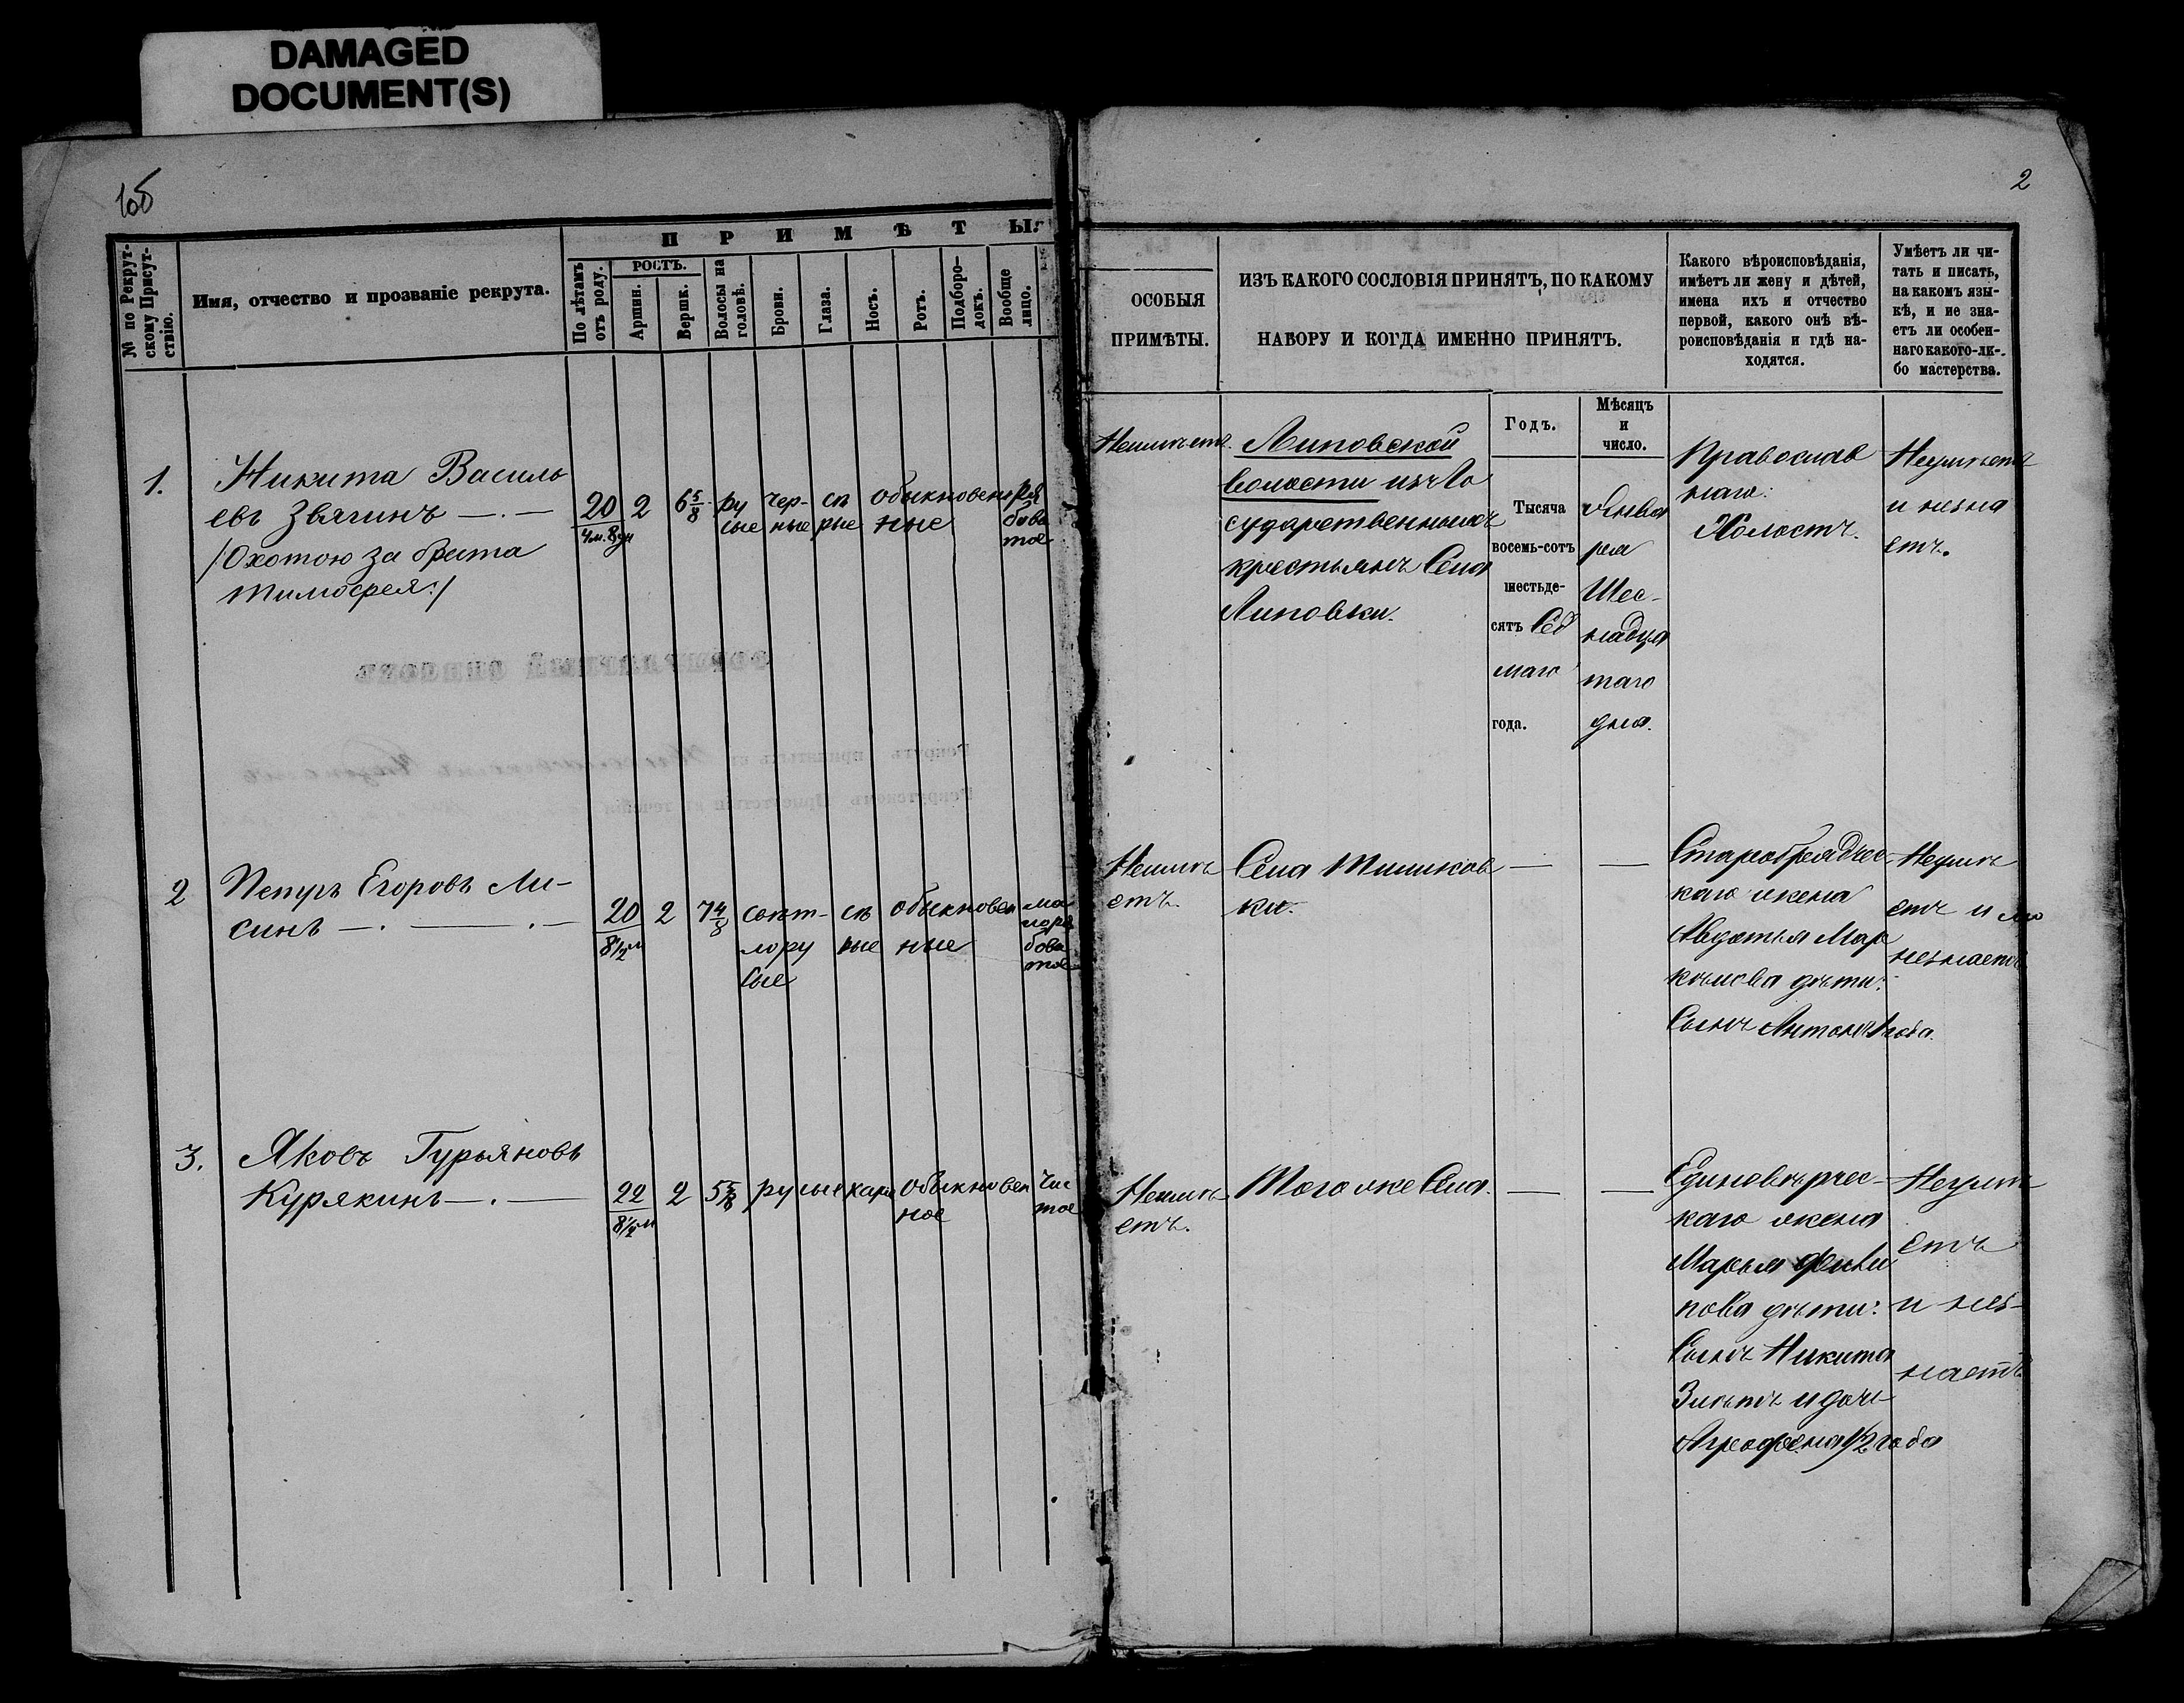 DAMAGED
DOCUMENT(S)
1об
2
№ по Рекрут-
скому Присут-
ствію.
Имя, отчество и прозваніе рекрута.
П Р И М Ѣ Т Ы.
По лѣтамъ
отъ роду.
РОСТЪ.
Аршин.
Вершк.
Волосы на
головѣ.
Брови.
Глаза.
Носъ.
Ротъ.
Подборо-
докъ.
Вообще
лицо.
ОСОБЫЯ
ПРИМѢТЫ.
ИЗЪ КАКОГО СОСЛОВІЯ ПРИНЯТЪ, ПО КАКОМУ
НАБОРУ И КОГДА ИМЕННО ПРИНЯТЪ.
Годъ.
Мѣсяцъ
и
число.
Какого вѣроисповѣданія,
имѣетъ ли жену и дѣтей,
имена ихъ и отчество
первой, какого онѣ вѣ-
роисповѣданія и гдѣ на-
ходятся.
Умѣетъ ли чи-
тать и писать,
на какомъ язы-
кѣ, и не зна-
етъ ли особен-
наго какого-ли-
бо мастерства.
1.
Никита Василь
евъ Звягинъ
/Охотою за брата
Тимофея:/
20
4м. 8дн
2
6 5/8
ру
сые
чер-
ные
сѣ
рые
обыкновен
ные
ря
бова
тое
Неимѣетъ.
Липовской
волости изъ Го
сударственныхъ
крестьянъ Села
Липовки.
Тысяча
восемь-сотъ
шестьде-
сятъ Сед
маго
года.
Янва
ря
Шес-
надца
таго
дня.
Православ
наго.
Холостъ.
Неумѣетъ
и незна
етъ.
2
Петръ Егоровъ Ли-
синъ
20
8 1/2 м
2
7 4/8
свѣт-
лору
сые
сѣ
рые
обыкновен
ные
ма
лоря
бова
тое
Неимѣ
етъ.
Села Тишков
ки.
Старобрядчес-
каго жена
Авдотья Мар
кѣлова дѣти:
Сынъ Антонъ 1 года.
Неумѣ
етъ и
незнаетъ
3.
Яковъ Гурьяновъ
Курякинъ
22
2
русые
карие
обыкновен
ное
чис
тое
Неимѣ-
етъ.
Того же Села.
Единовѣрчес-
каго жена
Марья Фили
пова дѣти:
Сынъ Никита
3 лѣтъ и дочь
Аграфена 1/2 года
Неумѣ
етъ
и нез-
наетъ